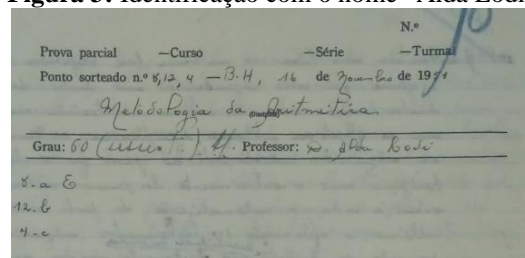 Figura 5: Identificação com o nome "Alda Lodi"
N.º 10
Prova parcial —Curso —Série —Turma
Ponto sorteado n.º 8, 12, 4 — B. H, 16 de novembro de 19
Metodologia da Aritmética
(Disciplina)
Grau: 60 ( Professor: D. Alda Lodi
8. a E
12. b
4. c